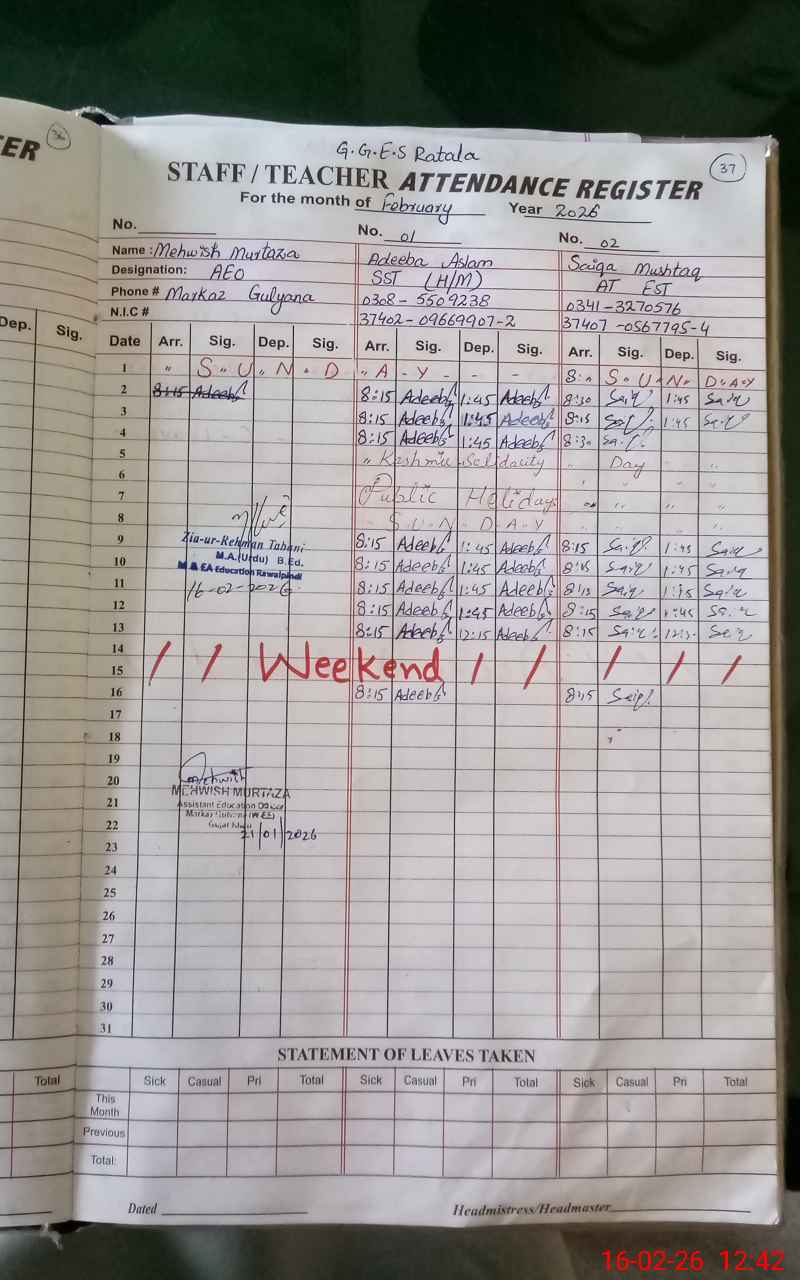 ER 36
G.G.E.S Ratala
STAFF / TEACHER ATTENDANCE REGISTER 37
For the month of February Year 2026
No. No. 01 No. 02
Name : Mehwish Murtaza Adeeba Aslam Saiqa Mushtaq
Designation: AEO SST (H/M) AT EST
Phone # Markaz Gulyana 0308-5509238 0341-3270576
N.I.C # 37402-09669907-2 37407-0567795-4
Dep. Sig. Date Arr. Sig. Dep. Sig. Arr. Sig. Dep. Sig. Arr. Sig. Dep. Sig.
1 S U N D A Y 8: S U N D A Y
2 8:15 Adeeba 8:15 Adeeba 1:45 Adeeba 8:30 Saiq 1:45 Saiq
3 8:15 Adeeba 1:45 Adeeba 8:15 Saiq 1:45 Saiq
4 8:15 Adeeba 1:45 Adeeba 8:30 Saiq
5 Kashmir Solidarity Day
6
7 Public Holidays
8 S U N D A Y
9 8:15 Adeeba 1:45 Adeeba 8:15 Saiq 1:45 Saiq
Zia-ur-Rehman Tabani
M.A.(Urdu) B.Ed.
10 8:15 Adeeba 1:45 Adeeba 8:15 Saiq 1:45 Saiq
M & EA Education Rawalpindi
11 16-02-2026 8:15 Adeeba 1:45 Adeeba 8:15 Saiq 1:45 Saiq
12 8:15 Adeeba 1:45 Adeeba 8:15 Saiq 1:45 Saiq
13 8:15 Adeeba 12:15 Adeeba 8:15 Saiq Saiq
14
Weekend
15
16 8:15 Adeeba 8:15 Saiq
17
18
19
20 Mehwish
MEHWISH MURTAZA
21 Assistant Education Officer
22 21/01/2026
23
24
25
26
27
28
29
30
31
STATEMENT OF LEAVES TAKEN
Total Sick Casual Pri Total Sick Casual Pri Total Sick Casual Pri Total
This Month
Previous
Total:
Dated Headmistress/Headmaster
16-02-26 12:42